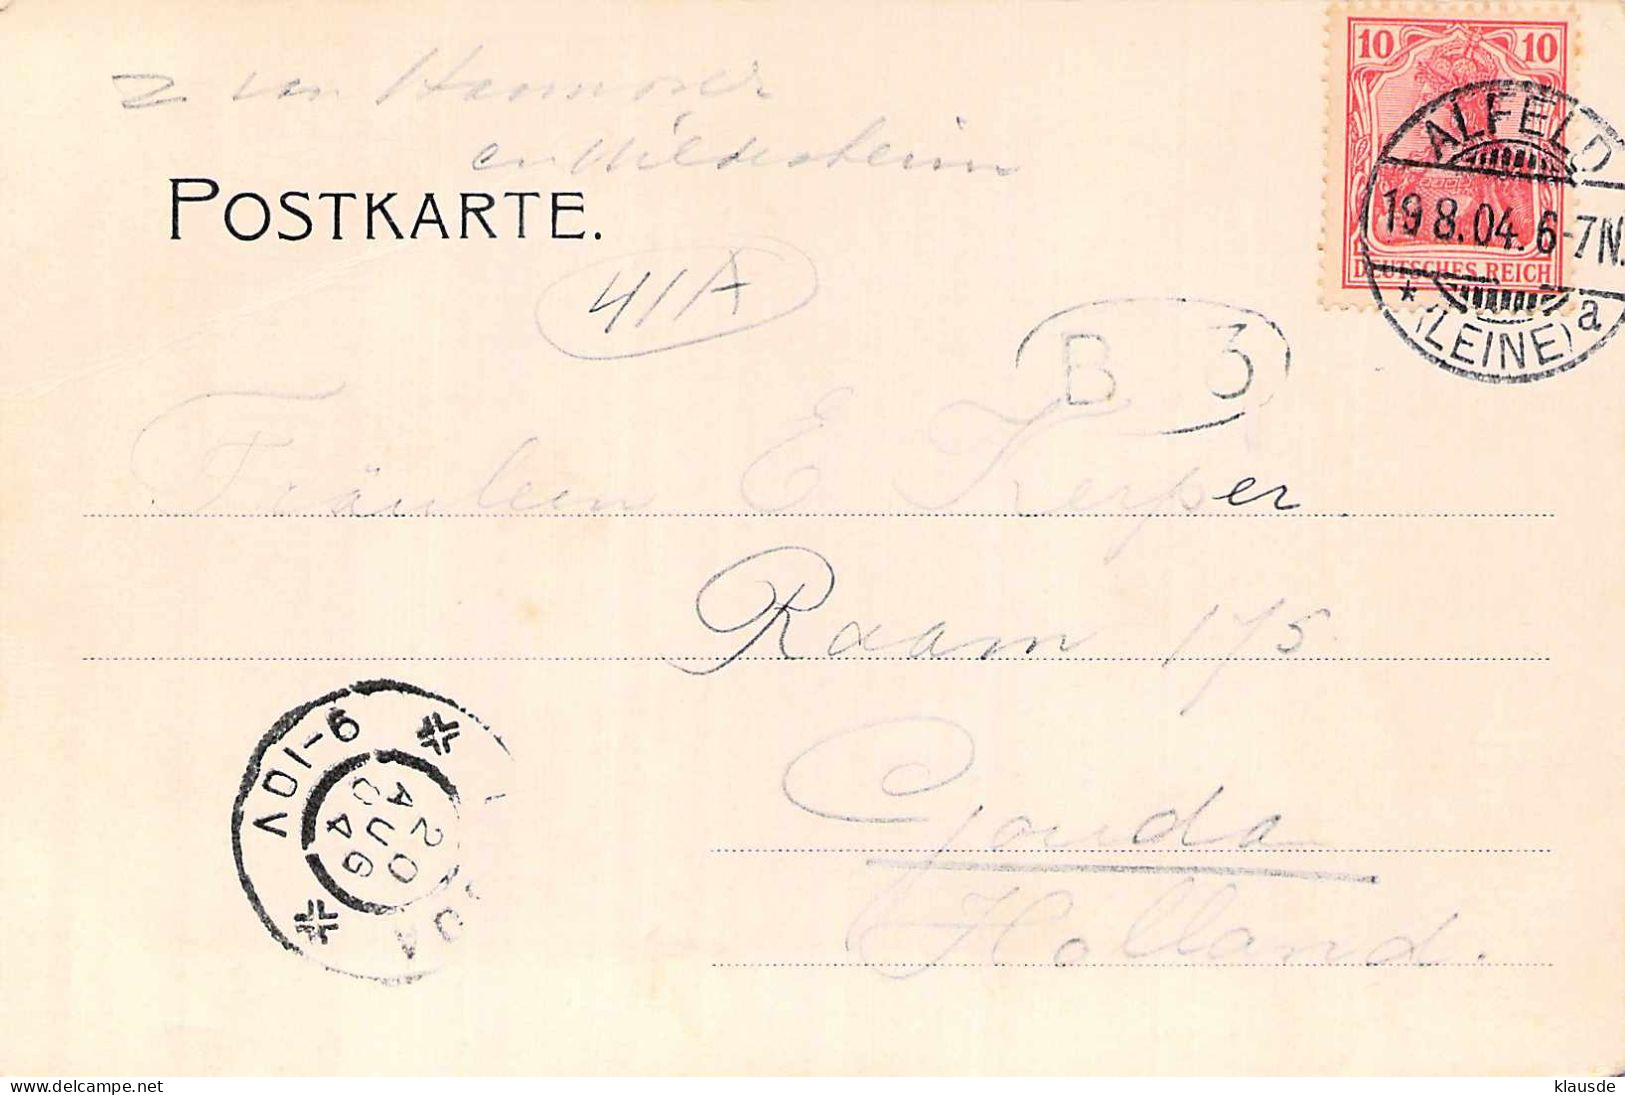 10 10
DEUTSCHES REICH
ALFELD
19 8.04. 6-7N.
* (LEINE) a
Z van Hannover
en Hildesheim
POSTKARTE.
41A
B 3
Fräulein E Kerper
Raam 175
Gouda
Holland.
9-10V
20
AUG
04
delcampe.net
klausde